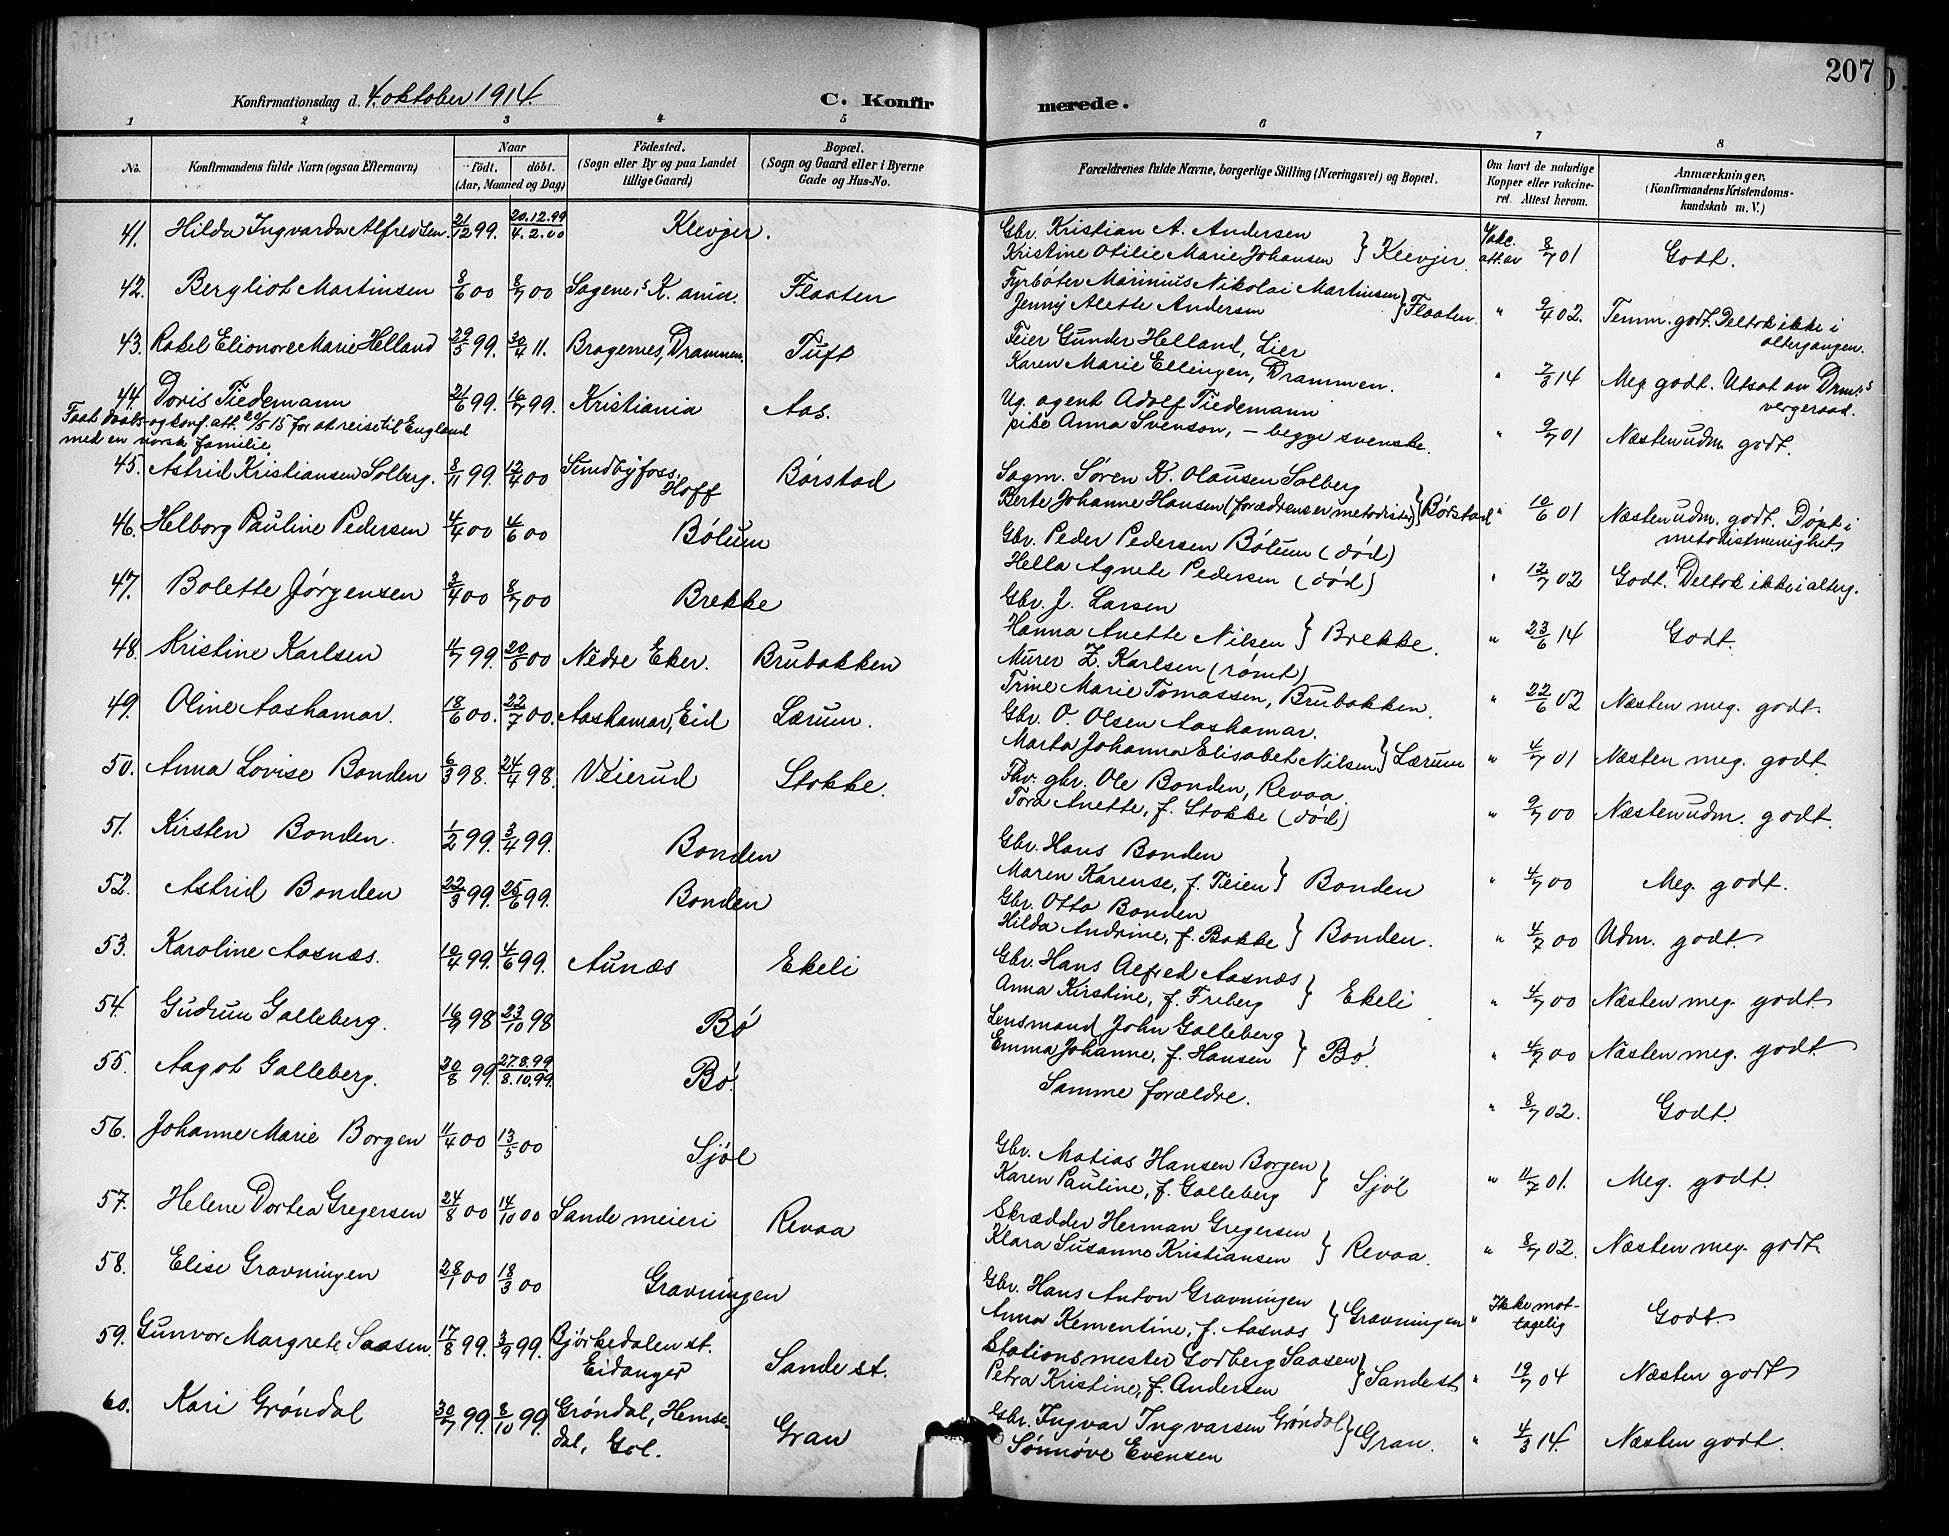 207
Konfirmationsdag d. 4. oktober 1914.
C. Konfirmerede.
1 2 3 4 5 6 7 8
No. Konfirmandens fulde Navn (ogsaa Efternavn) Naar født. døbt. (Aar, Maaned og Dag) Fødested. (Sogn eller By og paa Landet tillige Gaard) Bopæl. (Sogn og Gaard eller i Byerne Gade og Hus-No. Forældrenes fulde Navne, borgerlige Stilling (Næringsvei) og Bopæl. Om havt de naturlige Kopper eller vakcineret. Attest herom. Anmærkninger. (Konfirmandens Kristendomskundskab m. V.)
41. Hilda Ingvarda Alfredsen. 21/12 99. 20.12.99 / 4.2.00 Klevjer.
Gbr. Kristian A. Andersen
Kristine Otilie Marie Johansen } Klevjer. Vakc. att. av 8/7 01 Godt.
42. Bergliot Martinsen 8/6 00 8/7 00 Sagene, K. ania. Flaaten
Fyrbøter Marinius Nikolai Martinsen
Jenny Alette Andersen } Flaaten. " 9/4 02. Temm. godt. Deltok ikke i altergangen.
43. Rakel Elionore Marie Helland 29/5 99. 30/4 11. Bragernes, Drammen. Tuft
Feier Gunder Helland, Lier
Karen Marie Ellingen, Drammen. " 7/3 14 Meg godt. Utsat av Drm.s vergeraad.
44. Doris Tiedemann 21/6 99. 16/7 99. Kristiania Aas.
Faat daabs- og konf. att. 20/5 15 for at reise til England
med en norsk familie.
Ug. agent Adolf Tiedemann
pike Anna Svenson, – begge svenske. " 9/7 01 Næsten udm. godt.
45. Astrid Kristiansen Solberg. 8/11 99. 12/4 00 Sundbyfoss, Hoff Børstad
Sagm. Søren K. Olausen Solberg
Berte Johanne Hansen (forældrene er metodister) } Børstad " 10/6 01 Næsten udm. godt. Døpt i metodistmenighet.
46. Helborg Pauline Pedersen 4/4 00 4/6 00 Bølum
Gbr. Peder Pedersen Bølum (død)
Hella Agnete Pedersen (død) " 12/7 02 Godt. Deltok ikke i alterg.
47. Bolette Jørgensen 3/4 00 8/7 00 Brekke
Gbr. J. Larsen
Hanna Anette Nilsen } Brekke. " 23/6 14 Godt.
48. Kristine Karlsen 4/7 99. 20/5 00 Nedre Eker. Brubakken
Murer Z. Karlsen (rømt)
Trine Marie Tomassen, Brubakken. " 22/6 02 Næsten meg. godt
49. Oline Aashamar. 18/6 00. 22/7 00. Aashamar, Eid Lærum.
Gbr. O. Olsen Aashamar.
Marta Johanna Elisabet Nilsen } Lærum " 4/7 01 Næsten meg. godt.
50. Anna Lovise Bonden 6/3 98. 24/4 98. Veierud Stokke.
Fhv. gbr. Ole Bonden, Revaa.
Tora Anette, f. Stokke (død) " 9/7 00 Næsten udm. godt.
51. Kirsten Bonden. 1/2 99. 3/4 99. Bonden
Gbr. Hans Bonden
Maren Karense, f. Teien } Bonden " 4/7 00 Meg. godt.
52. Astrid Bonden 22/3 99. 25/6 99. Bonden
Gbr. Otto Bonden
Hilda Andrine, f. Bakke } Bonden. " 4/7 00 Udm. godt.
53. Karoline Aasnæs. 10/4 99. 4/6 99. Aunæs Ekeli
Gbr. Hans Alfred Aasnæs
Anna Kirstine, f. Friberg } Ekeli " 4/7 00 Næsten meg. godt
54. Gudrun Galleberg. 16/9 98 23/10 98 Bø
Lensmand John Galleberg
Emma Johanne, f. Hansen } Bø. " 4/7 00 Næsten meg. godt
55. Aagot Galleberg. 20/8 99. 27.8.99 / 8.10.99. Bø.
Samme forældre. " 8/7 02. Godt.
56. Johanne Marie Borgen 11/4 00 13/5 00 Sjøl
Gbr. Matias Hansen Borgen
Karen Pauline, f. Galleberg } Sjøl " 11/7 01. Meg. godt.
57. Helene Dortea Gregersen 24/8 00 14/10 00 Sande meieri Revaa
Skrædder Herman Gregersen
Klara Susanne Kristiansen } Revaa. " 8/7 02. Næsten meg. godt.
58. Elise Gravningen 28/1 00 18/3 00 Gravningen
Gbr. Hans Anton Gravningen
Anna Klementine, f. Aasnæs } Gravningen " Ikke mottagelig Godt
59. Gunvor Margrete Saasen. 17/8 99. 3/9 99. Bjørkedalen st. Eidanger Sande st.
Stationsmester Godberg Saasen
Petra Kristine, f. Andersen } Sande st. " 19/7 04 Næsten godt
60. Kari Grøndal 30/7 99. 8/10 99. Grøndal, Hemsedal, Gol. Gran
Gbr. Ingvar Ingvarsen Grøndal
Sønnøve Evensen } Gran. " 4/3 14. Næsten godt.